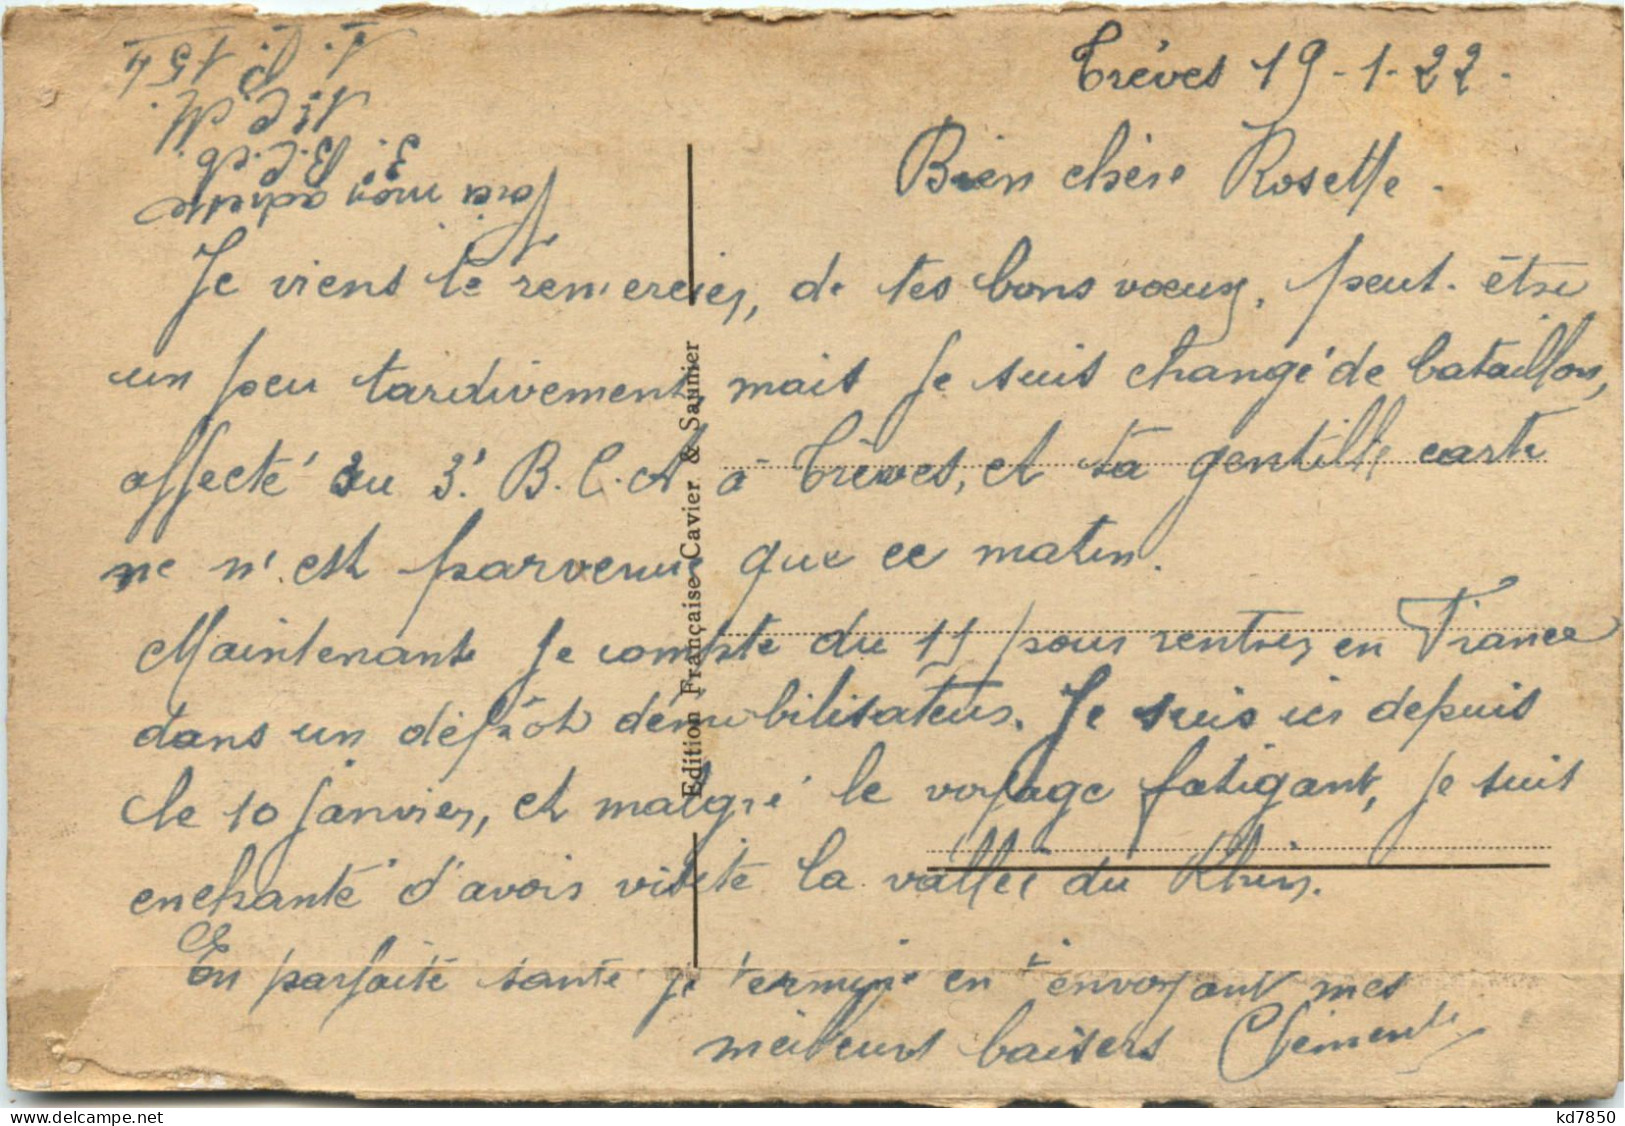 Trèves 19-1-22.
Bien chère Rosette.
Je viens te remercier, de tes bons voeux, peut-être
un peu tardivement, mais je suis changé de bataillon,
affecté au 3e B.C.A à Trèves, et ta gentille carte
ne n'est parvenue que ce matin.
Maintenant je compte du 11 pour rentrer en France
dans un dépôt démobilisateur. Je suis ici depuis
le 10 janvier, et malgré le voyage fatigant, je suis
enchanté d'avoir visité la vallée du Rhin.
En parfaite santé je termine en t'envoyant mes
meilleurs baisers Clément
Voici mon adresse
3e B.C.
S.P. 154
Edition Française Cavier & Saunier
kd7850
delcampe.net